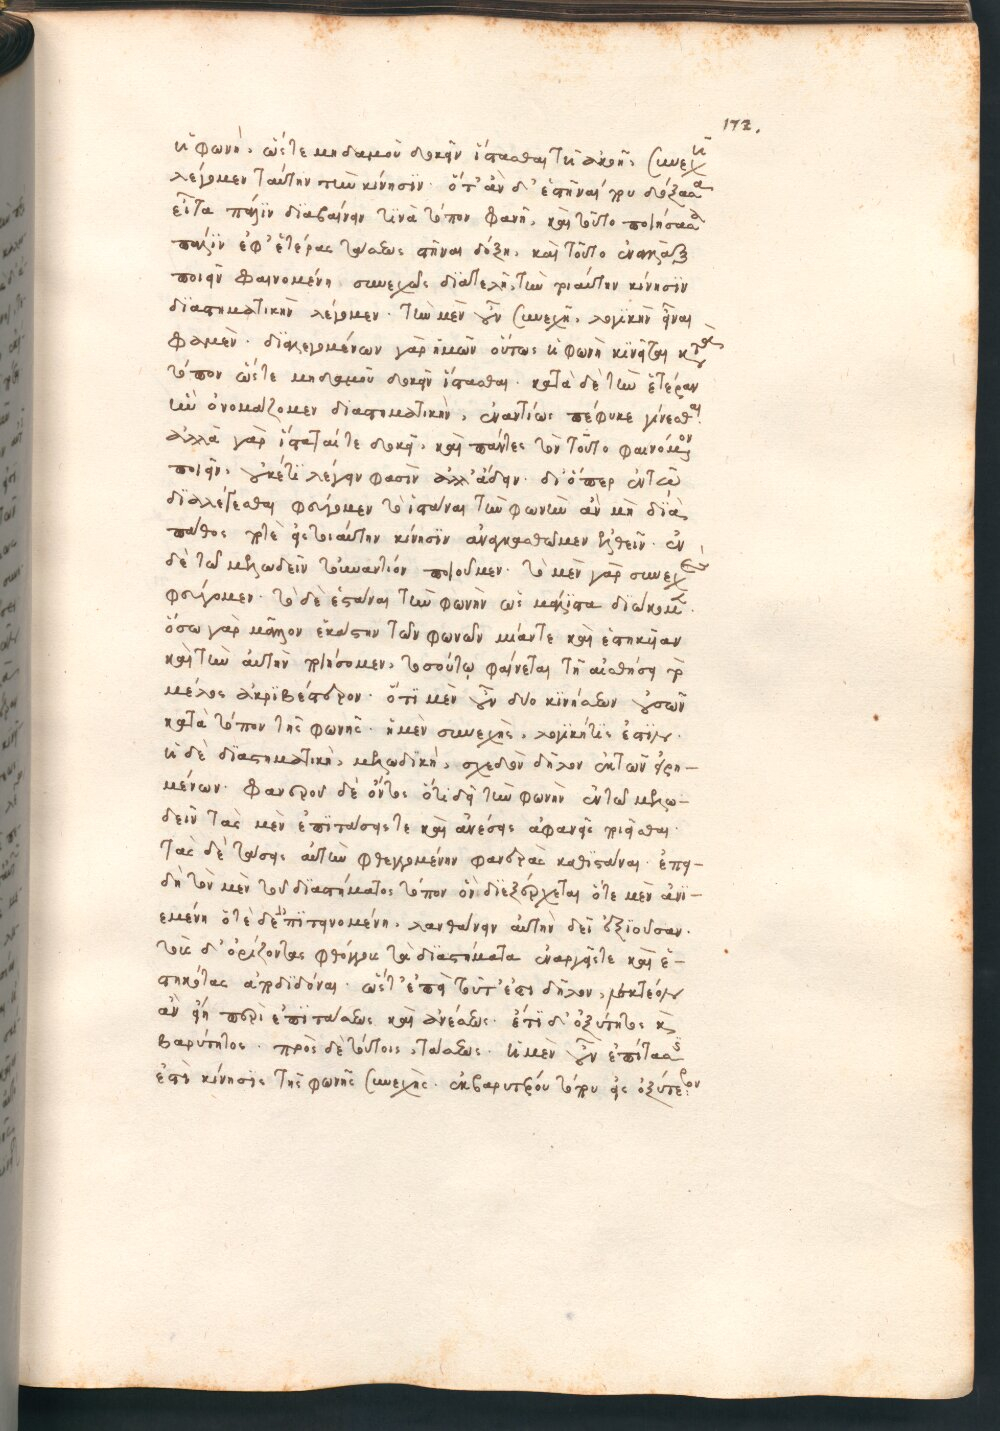 172.
ἡ φωνὴ, ὥστε μηδαμοῦ δοκεῖν ἵστασθαι τῇ ἀκοῇ, συνεχῆ
λέγομεν ταύτην τὴν κίνησιν· ὅταν δ' ἐστῆναί που δόξασα
εἶτα πάλιν διαβαίνειν τινὰ τόπον φανῇ, καὶ τοῦτο ποιήσασα
πάλιν ἐφ' ἑτέρας τάσεως στῆναι δόξῃ, καὶ τοῦτο ἐναλλὰξ
ποιεῖν φαινομένη συνεχῶς διατελῇ, τὴν τοιαύτην κίνησιν
διαστηματικὴν λέγομεν· τὴν μὲν οὖν συνεχῆ, λογικὴν εἶναί
φαμεν· διαλεγομένων γὰρ ἡμῶν οὕτως ἡ φωνὴ κινεῖται κατὰ
τόπον ὥστε μηδαμοῦ δοκεῖν ἵστασθαι· κατὰ δὲ τὴν ἑτέραν
ἣν ὀνομάζομεν διαστηματικὴν, ἐναντίως πέφυκε γίνεσθαι·
ἀλλὰ γὰρ ἵσταταί τε δοκεῖ, καὶ πάντες τὸν τοῦτο φαινόμενον
ποιεῖν, οὐκέτι λέγειν φασὶν ἀλλ' ἄδειν· διόπερ ἐν τῷ
διαλέγεσθαι φεύγομεν τὸ ἱστάναι τὴν φωνὴν ἂν μὴ διὰ
πάθος ποτὲ εἰς τοιαύτην κίνησιν ἀναγκασθῶμεν ἐλθεῖν· ἐν
δὲ τῷ μελῳδεῖν τοὐναντίον ποιοῦμεν· τὸ μὲν γὰρ συνεχὲς
φεύγομεν· τὸ δὲ ἑστάναι τὴν φωνὴν ὡς μάλιστα διώκομεν·
ὅσῳ γὰρ μᾶλλον ἑκάστην τῶν φωνῶν μίαν τε καὶ ἑστηκυῖαν
καὶ τὴν αὐτὴν ποιήσομεν, τοσούτῳ φαίνεται τῇ αἰσθήσει τὸ
μέλος ἀκριβέστερον· ὅτι μὲν οὖν δύο κινήσεων οὐσῶν
κατὰ τόπον τῆς φωνῆς· ἡ μὲν συνεχὴς, λογική τις ἐστίν·
ἡ δὲ διαστηματικὴ, μελῳδικὴ, σχεδὸν δῆλον ἐκ τῶν εἰρη-
μένων· φανεροῦ δὲ ὄντος ὅτι δεῖ τὴν φωνὴν ἐν τῷ μελῳ-
δεῖν τὰς μὲν ἐπιτάσεις τε καὶ ἀνέσεις ἀφανεῖς ποιεῖσθαι·
τὰς δὲ τάσεις αὐτὴν φθεγγομένην φανερὰς καθιστάναι· ἐπει-
δὴ τὸν μὲν τοῦ διαστήματος τόπον ὃν διεξέρχεται ὁτὲ μὲν ἀνι-
εμένη ὁτὲ δὲ ἐπιτεινομένη, λανθάνειν αὐτὴν δεῖ διεξιοῦσαν·
τοὺς δ' ὁρίζοντας φθόγγους τὰ διαστήματα ἐναργεῖς τε καὶ ἑ-
στηκότας ἀποδιδόναι· ὥστ' ἐπεὶ τοῦτ' ἐστὶ δῆλον, λεκτέον
ἂν εἴη περὶ ἐπιτάσεως καὶ ἀνέσεως· ἔτι δ' ὀξύτητος καὶ
βαρύτητος· πρὸς δὲ τούτοις, τάσεως· ἡ μὲν οὖν ἐπίτασις
ἐστὶ κίνησις τῆς φωνῆς συνεχὴς· ἐκ βαρυτέρου τόπου εἰς ὀξύτερον·